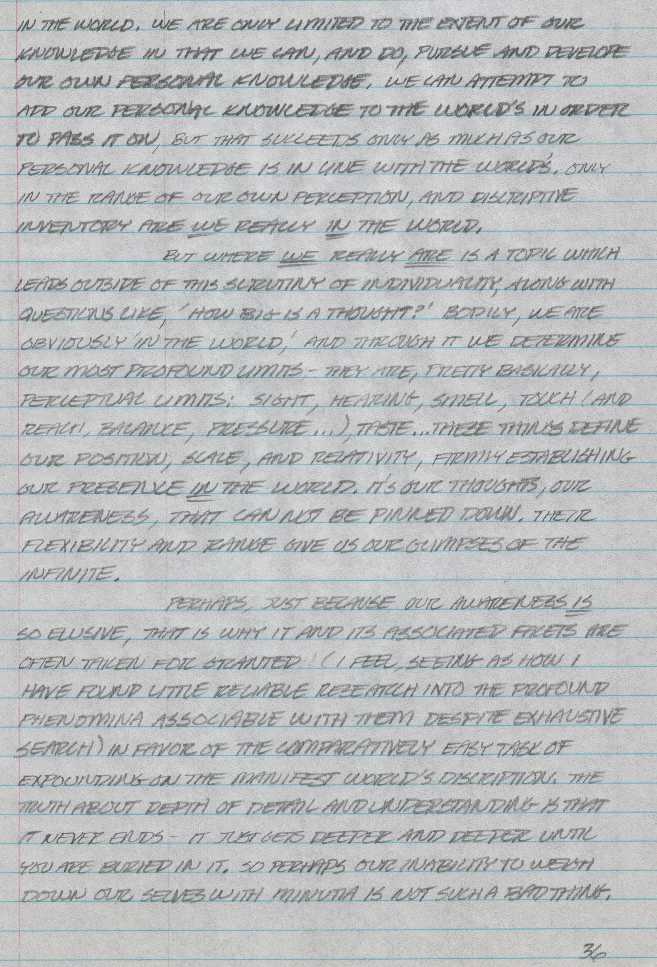 IN THE WORLD. WE ARE ONLY LIMITED TO THE EXTENT OF OUR
KNOWLEDGE IN THAT WE CAN, AND DO, PURSUE AND DEVELOPE
OUR OWN PERSONAL KNOWLEDGE. WE CAN ATTEMPT TO
ADD OUR PERSONAL KNOWLEDGE TO THE WORLD'S IN ORDER
TO PASS IT ON, BUT THAT SUCCEEDS ONLY AS MUCH AS OUR
PERSONAL KNOWLEDGE IS IN LINE WITH THE WORLD'S. ONLY
IN THE RANGE OF OUR OWN PERCEPTION, AND DISCRIPTIVE
INVENTORY ARE WE REALLY IN THE WORLD.
BUT WHERE WE REALLY ARE IS A TOPIC WHICH
LEADS OUTSIDE OF THIS SCRUTINY OF INDIVIDUALITY, ALONG WITH
QUESTIONS LIKE, 'HOW BIG IS A THOUGHT?' BODILY, WE ARE
OBVIOUSLY 'IN THE WORLD,' AND THROUGH IT WE DETERMINE
OUR MOST PROFOUND LIMITS - THEY ARE, PRETTY BASICALLY,
PERCEPTUAL LIMITS: SIGHT, HEARING, SMELL, TOUCH (AND
REACH, BALANCE, PRESSURE...), TASTE...THESE THINGS DEFINE
OUR POSITION, SCALE, AND RELATIVITY, FIRMLY ESTABLISHING
OUR PRESENCE IN THE WORLD. IT'S OUR THOUGHTS, OUR
AWARENESS, THAT CAN NOT BE PINNED DOWN. THEIR
FLEXIBILITY AND RANGE GIVE US OUR GLIMPSES OF THE
INFINITE.
PERHAPS, JUST BECAUSE OUR AWARENESS IS
SO ELUSIVE, THAT IS WHY IT AND ITS ASSOCIATED FACETS ARE
OFTEN TAKEN FOR GRANTED (I FEEL, SEEING AS HOW I
HAVE FOUND LITTLE RELIABLE RESEARCH INTO THE PROFOUND
PHENOMINA ASSOCIABLE WITH THEM DESPITE EXHAUSTIVE
SEARCH) IN FAVOR OF THE COMPARATIVELY EASY TASK OF
EXPOUNDING ON THE MANIFEST WORLD'S DISCRIPTION. THE
TRUTH ABOUT DEPTH OF DETAIL AND UNDERSTANDING IS THAT
IT NEVER ENDS - IT JUST GETS DEEPER AND DEEPER UNTIL
YOU ARE BURIED IN IT. SO PERHAPS OUR INABILITY TO WEIGH
DOWN OUR SELVES WITH MINUTIA IS NOT SUCH A BAD THING.
36